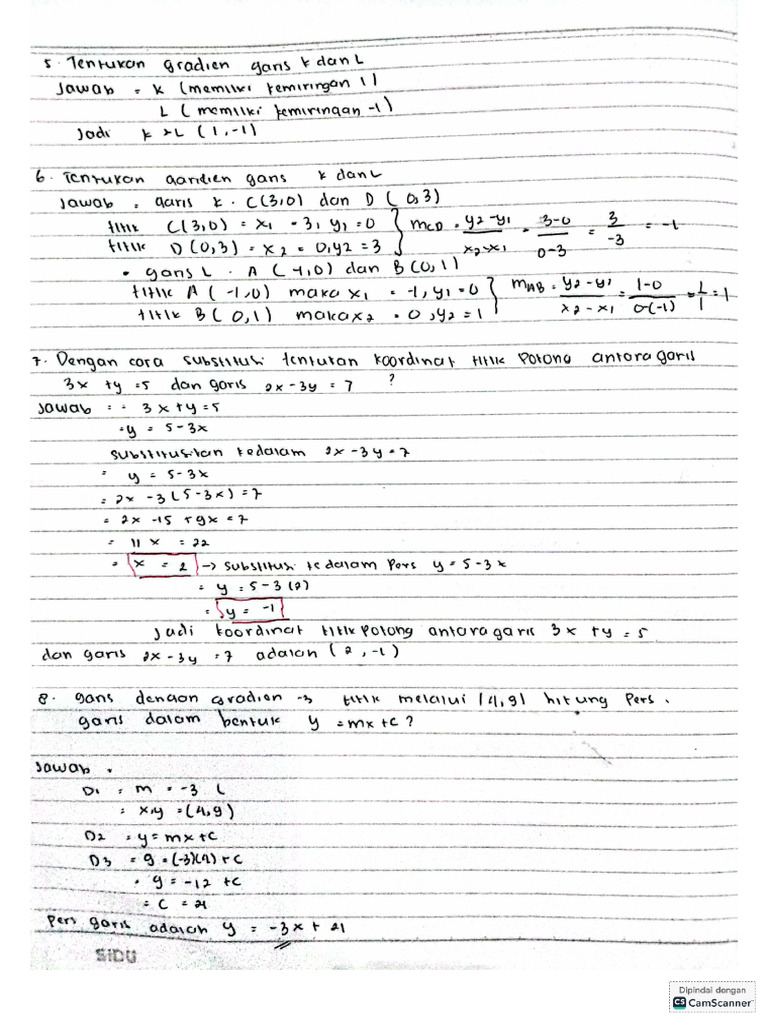 5. Tentukan gradien garis k dan L
Jawab = K (memiliki kemiringan 1)
L (memiliki kemiringan -1)
Jadi k > L (1, -1)
6. Tentukan garidien garis k dan L
Jawab = garis k . C(3,0) dan D (0,3)
titik C(3,0) = x1 = 3, y1 = 0 } mCD = y2-y1 / x2-x1 = 3-0 / 0-3 = 3 / -3 = -1
titik D (0,3) = x2 = 0, y2 = 3
• garis L . A (-1,0) dan B (0,1)
titik A (-1,0) maka x1 = -1, y1 = 0 } mAB = y2-y1 / x2-x1 = 1-0 / 0-(-1) = 1 / 1 = 1
titik B (0,1) maka x2 = 0, y2 = 1
7. Dengan cara substitusi tentukan koordinat titik potong antara garis
3x + y = 5 dan garis 2x - 3y = 7 ?
Jawab : = 3x + y = 5
= y = 5 - 3x
substitusikan kedalam 2x - 3y = 7
= y = 5 - 3x
= 2x - 3(5 - 3x) = 7
= 2x - 15 + 9x = 7
= 11x = 22
= x = 2 → substitusi kedalam Pers y = 5 - 3x
= y = 5 - 3(2)
= y = -1
Jadi koordinat titik potong antara garis 3x + y = 5
dan garis 2x - 3y = 7 adalah (2, -1)
8. garis dengan gradien -3 titik melalui (4,9) hitung Pers.
garis dalam bentuk y = mx + c ?
Jawab .
D1 = m = -3 (
= x,y = (4,9)
D2 = y = mx + c
D3 = 9 = (-3)(4) + c
= 9 = -12 + c
= c = 21
Pers garis adalah y = -3x + 21
SiDU
Dipindai dengan
CS CamScanner